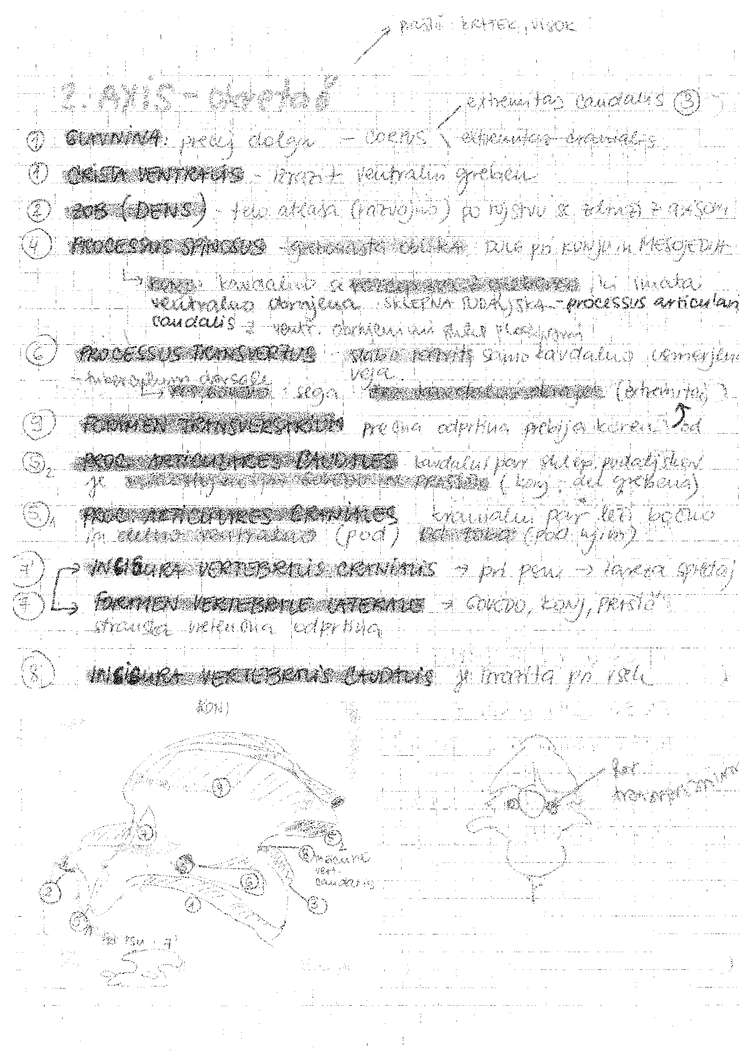 prašič: KRATEK, VISOK
2. AXIS - obretač
extremitas caudalis ③
① GLAVNINA: precej dolga - CORPUS extremitas cranialis
① CRISTA VENTRALIS - izrazit ventralni greben
② ZOB (DENS) - telo atlasa (razvojno) po rojstvu se združi z axisom
④ PROCESSUS SPINOSUS - grebenasta oblika, DOLG pri KONJU in MESOJEDIH
KONJ: kaudalno se ki imata
ventralno obrnjena SKLEPNA PODALJŠKA - processus articularis
caudalis z ventr. obrnjenimi
⑥ PROCESSUS TRANSVERSUS - slabo razvit, samo kavdalno usmerjena
veja.
- tuberculum dorsale
sega (extremitas)
⑨ FORAMEN TRANSVERSARIUM prečna odprtina prebija koren od
⑤₂ PROC. ARTICULARES CAUDALES kavdalni par sklep. podaljškov
je pri GOVEDO IN PRAŠIČU (konj: del grebena)
⑤₁ PROC. ARTICULARES CRANIALES kranialni par leži bočno
in delno ventralno (pod) od zoba (pod njim)
⑦' INCISURA VERTEBRALIS CRANIALIS → pri psu → zareza spredaj
⑦ FORAMEN VERTEBRALE LATERALE → GOVEDO, KONJ, PRAŠIČ
stranska vretenčna odprtina
⑧ INCISURA VERTEBRALIS CAUDALIS je izrazita pri vseh
KONJ
for
transversarium
incisura
vert.
caudalis
pri psu: 7'